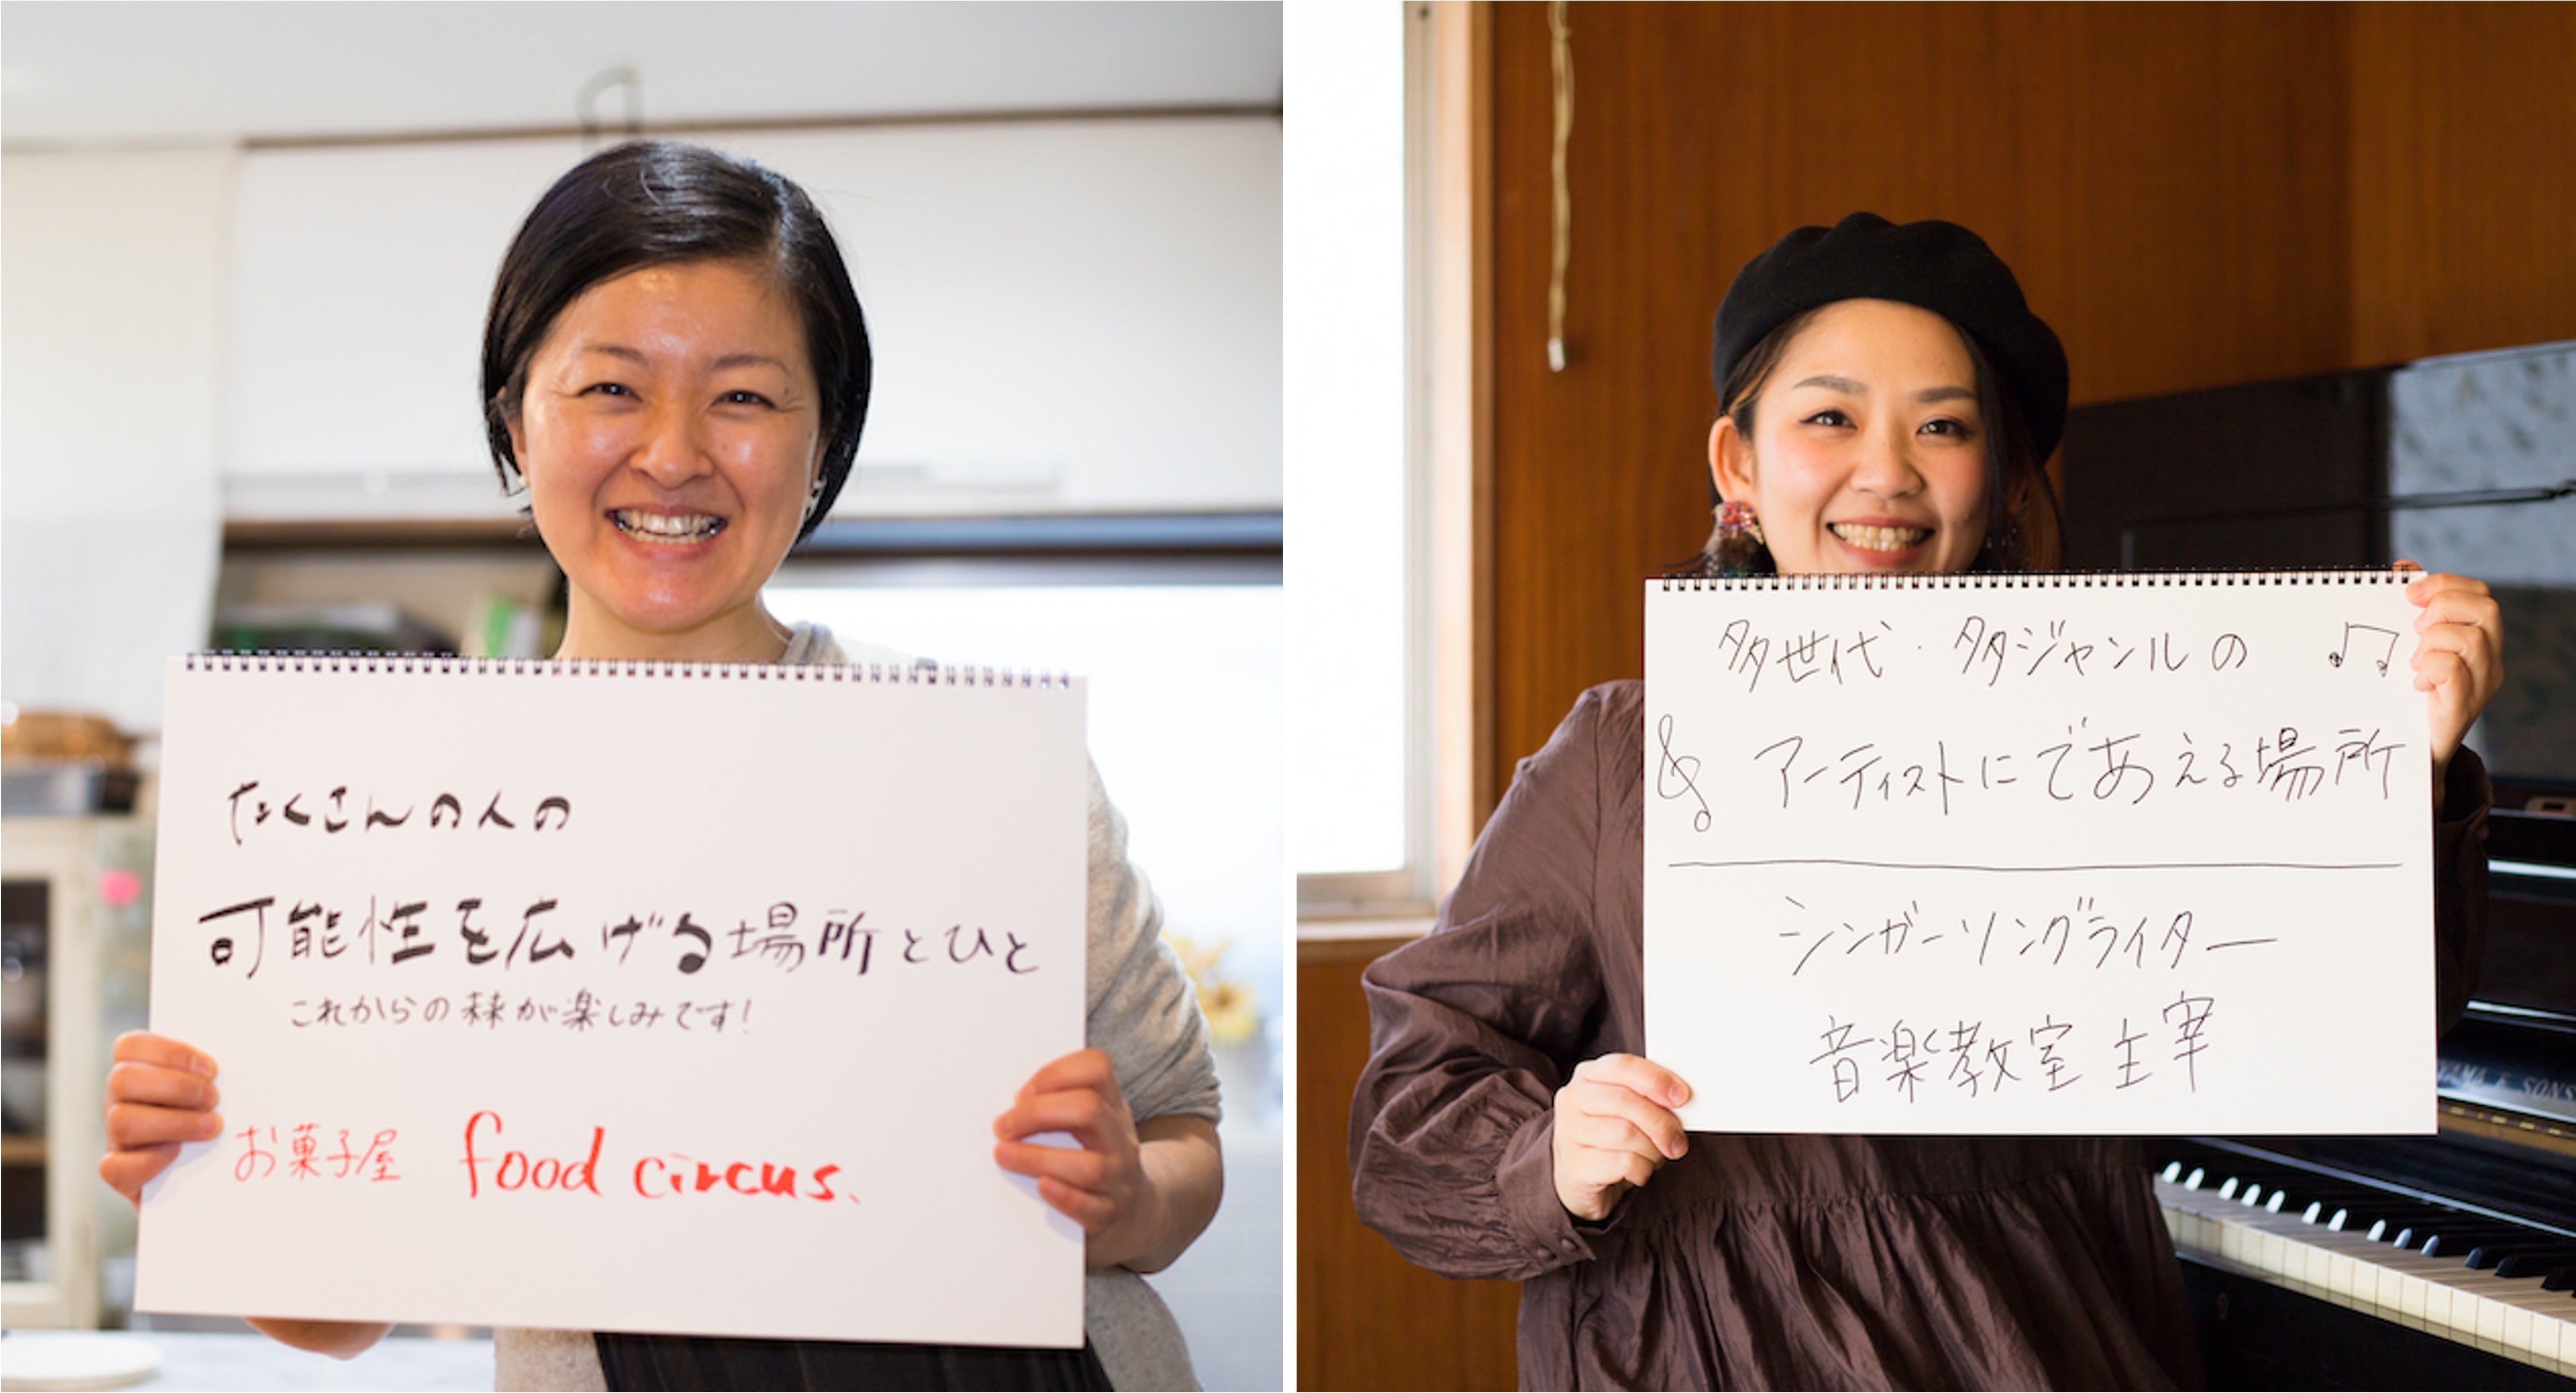 たくさんの人の
可能性を広げる場所とひと
これからの森が楽しみです!
お菓子屋 food circus.
多世代・多ジャンルの
アーティストにであえる場所
シンガーソングライター
音楽教室 主宰
YAMA & SONS